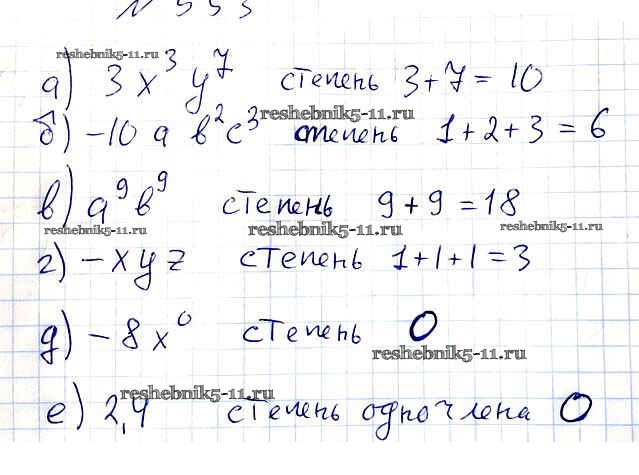 N 553
reshebnik5-11.ru
а) 3x³y⁷ степень 3+7=10
reshebnik5-11.ru
б) -10ab²c³ степень 1+2+3=6
в) a⁹b⁹ степень 9+9=18
reshebnik5-11.ru reshebnik5-11.ru reshebnik5-11.ru
г) -xyz степень 1+1+1=3
д) -8x⁰ степень 0
reshebnik5-11.ru
reshebnik5-11.ru
е) 2,4 степень одночлена 0